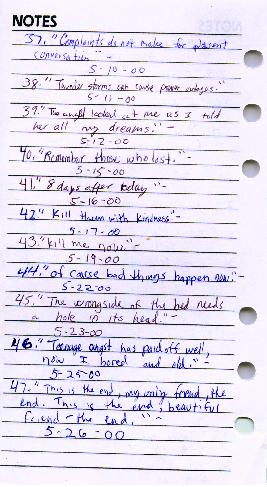 NOTES
37. "Complaints do not make for pleasant
conversation" -
5-10-00
38. "Thunder storms can cause power outages." -
5-11-00
39. "The angel looked at me as I told
her all my dreams." -
5-12-00
40. "Remember those who lost." -
5-15-00
41. "8 days after today" -
5-16-00
42 "Kill them with kindness" -
5-17-00
43. "Kill me now." -
5-19-00
44. "Of cause bad things happen now." -
5-22-00
45. "The wrong side of the bed needs
a hole in its head." -
5-23-00
46. "Teenage angst has paid off well,
now I bored and old." -
5-25-00
47. "This is the end, my only friend, the
end. This is the end, beautiful
friend - the end." -
5-26-00